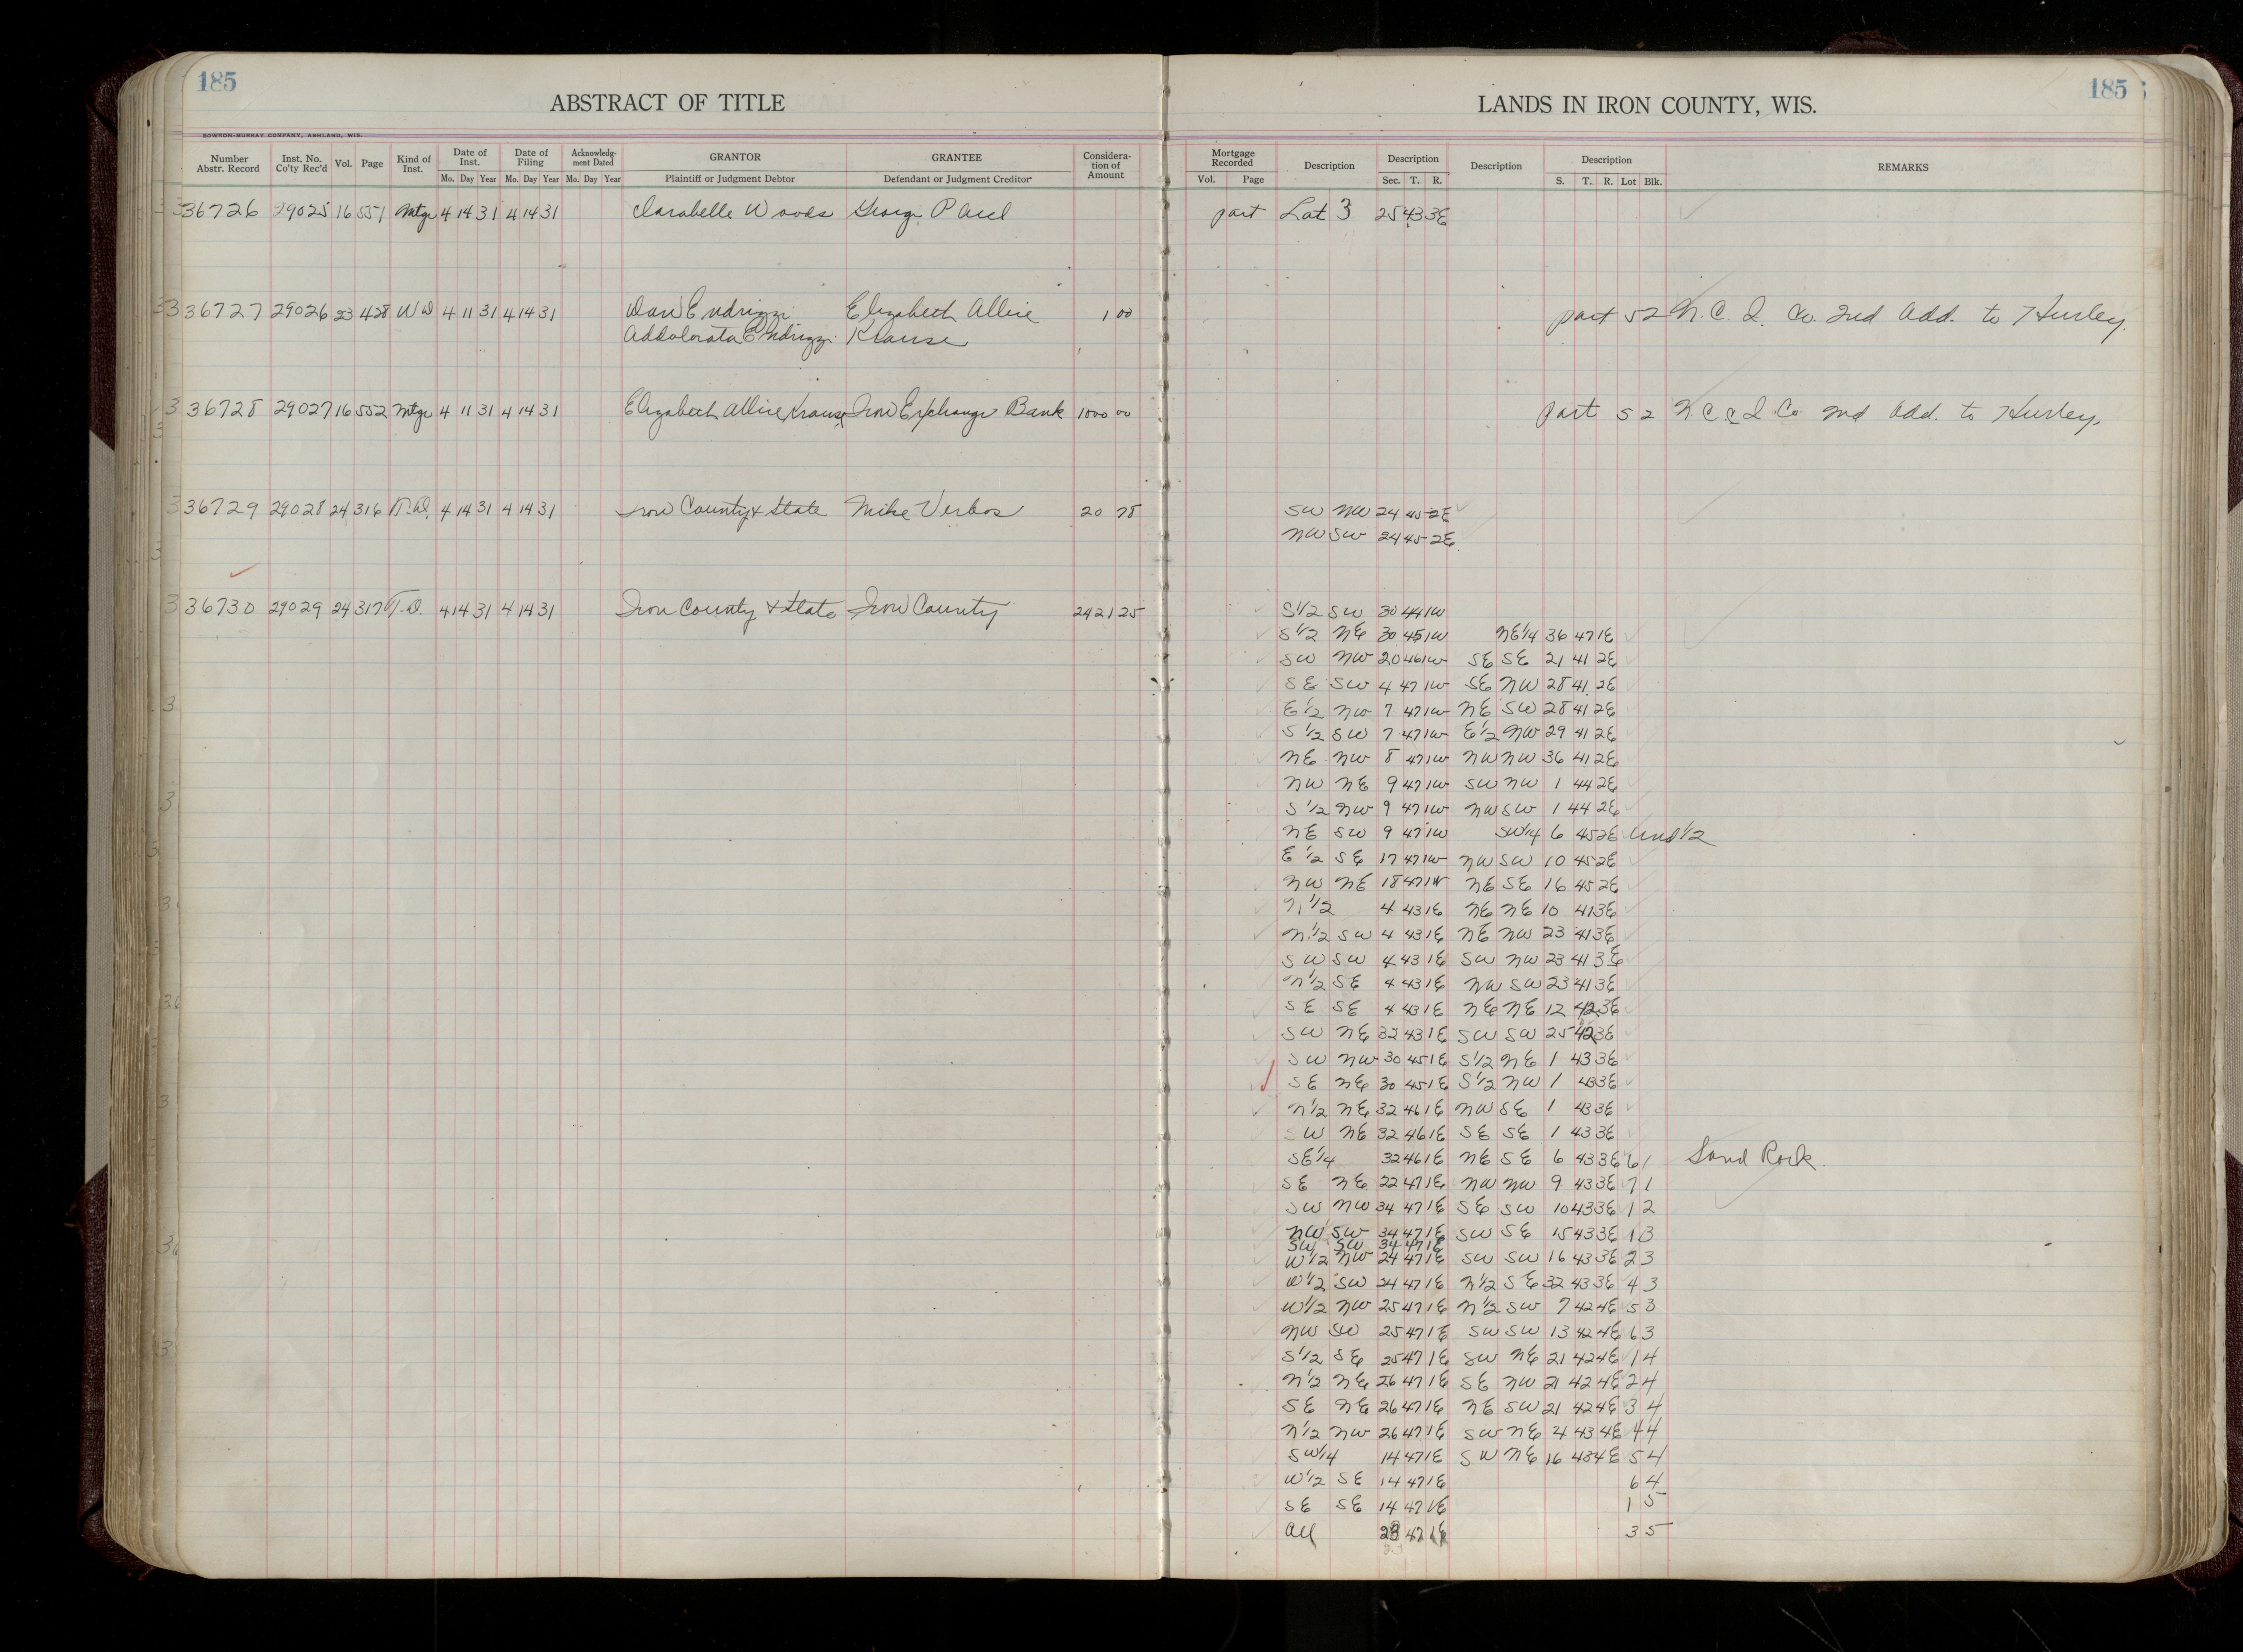 185
185
ABSTRACT OF TITLE
LANDS IN IRON COUNTY, WIS.
BOWRON-MURRAY COMPANY, ASHLAND, WIS.
Number Abstr. Record Inst. No. Co'ty Rec'd Vol. Page Kind of Inst. Date of Inst. Date of Filing Acknowledgment Dated GRANTOR GRANTEE Consideration of Amount Mortgage Recorded Description Description Description Description REMARKS
Mo. Day Year Mo. Day Year Mo. Day Year Plaintiff or Judgment Debtor Defendant or Judgment Creditor Vol. Page Sec. T. R. S. T. R. Lot Blk.
36726 29025 16 551 Mtge 4 14 31 4 14 31 Clarabelle Woods George P part Lot 3 25 43 3E
36727 29026 23 428 WD 4 11 31 4 14 31 Dan Endrizzi Elizabeth Allie 1 00 part 52 N.C.I. Co. 2nd Add. to Hurley.
Addolorata Endrizzi Krause
36728 29027 16 552 Mtge 4 11 31 4 14 31 Elizabeth Allie Krause Iron Exchange Bank 1500 00 part 52 N.C.C.I. Co 2nd Add. to Hurley.
36729 29028 24 316 T.D. 4 14 31 4 14 31 Iron County & State Mike Verbos 20 78 SW NW 24 45 2E
NW SW 24 45 2E
36730 29029 24 317 T.D. 4 14 31 4 14 31 Iron County & State Iron County 2421 25 S1/2 SW 30 44 1W
S1/2 NE 30 45 1W NE1/4 36 47 1E
SW NW 20 46 1W SE SE 21 41 2E
SE SW 4 47 1W SE NW 28 41 2E
E1/2 NW 7 47 1W NE SW 28 41 2E
S1/2 SW 7 47 1W E1/2 NW 29 41 2E
NE NW 8 47 1W NW NW 36 41 2E
NW NE 9 47 1W SW NW 1 44 2E
S1/2 NW 9 47 1W NW SW 1 44 2E
NE SW 9 47 1W SW1/4 6 45 2E Und 1/2
E1/2 SE 17 47 1W NW SW 10 45 2E
NW NE 18 47 1W NE SE 16 45 2E
N1/2 4 43 1E NE NE 10 41 3E
N1/2 SW 4 43 1E NE NW 23 41 3E
SW SW 4 43 1E SW NW 23 41 3E
N1/2 SE 4 43 1E NW SW 23 41 3E
SE SE 4 43 1E NE NE 12 42 3E
SW NE 32 43 1E SW SW 25 42 3E
SW NW 30 45 1E S1/2 NE 1 43 3E
SE NE 30 45 1E S1/2 NW 1 43 3E
N1/2 NE 32 46 1E NW SE 1 43 3E
SW NE 32 46 1E SE SE 1 43 3E
SE1/4 32 46 1E NE SE 6 43 3E 6 1 Sand Rock
SE NE 22 47 1E NW NW 9 43 3E 7 1
SW NW 34 47 1E SE SW 10 43 3E 1 2
NW SW 34 47 1E SW SE 15 43 3E 1 3
SW SW 34 47 1E
W1/2 NW 24 47 1E SW SW 16 43 3E 2 3
W1/2 SW 24 47 1E N1/2 SE 32 43 3E 4 3
W1/2 NW 25 47 1E N1/2 SW 7 42 4E 5 3
NW SW 25 47 1E SW SW 13 42 4E 6 3
S1/2 SE 25 47 1E SW NE 21 42 4E 1 4
N1/2 NE 26 47 1E SE NW 21 42 4E 2 4
SE NE 26 47 1E NE SW 21 42 4E 3 4
N1/2 NW 26 47 1E SW NE 4 43 4E 4 4
SW1/4 14 47 1E SW NE 16 43 4E 5 4
W1/2 SE 14 47 1E 6 4
SE SE 14 47 1E 1 5
All 23 47 1E 3 5